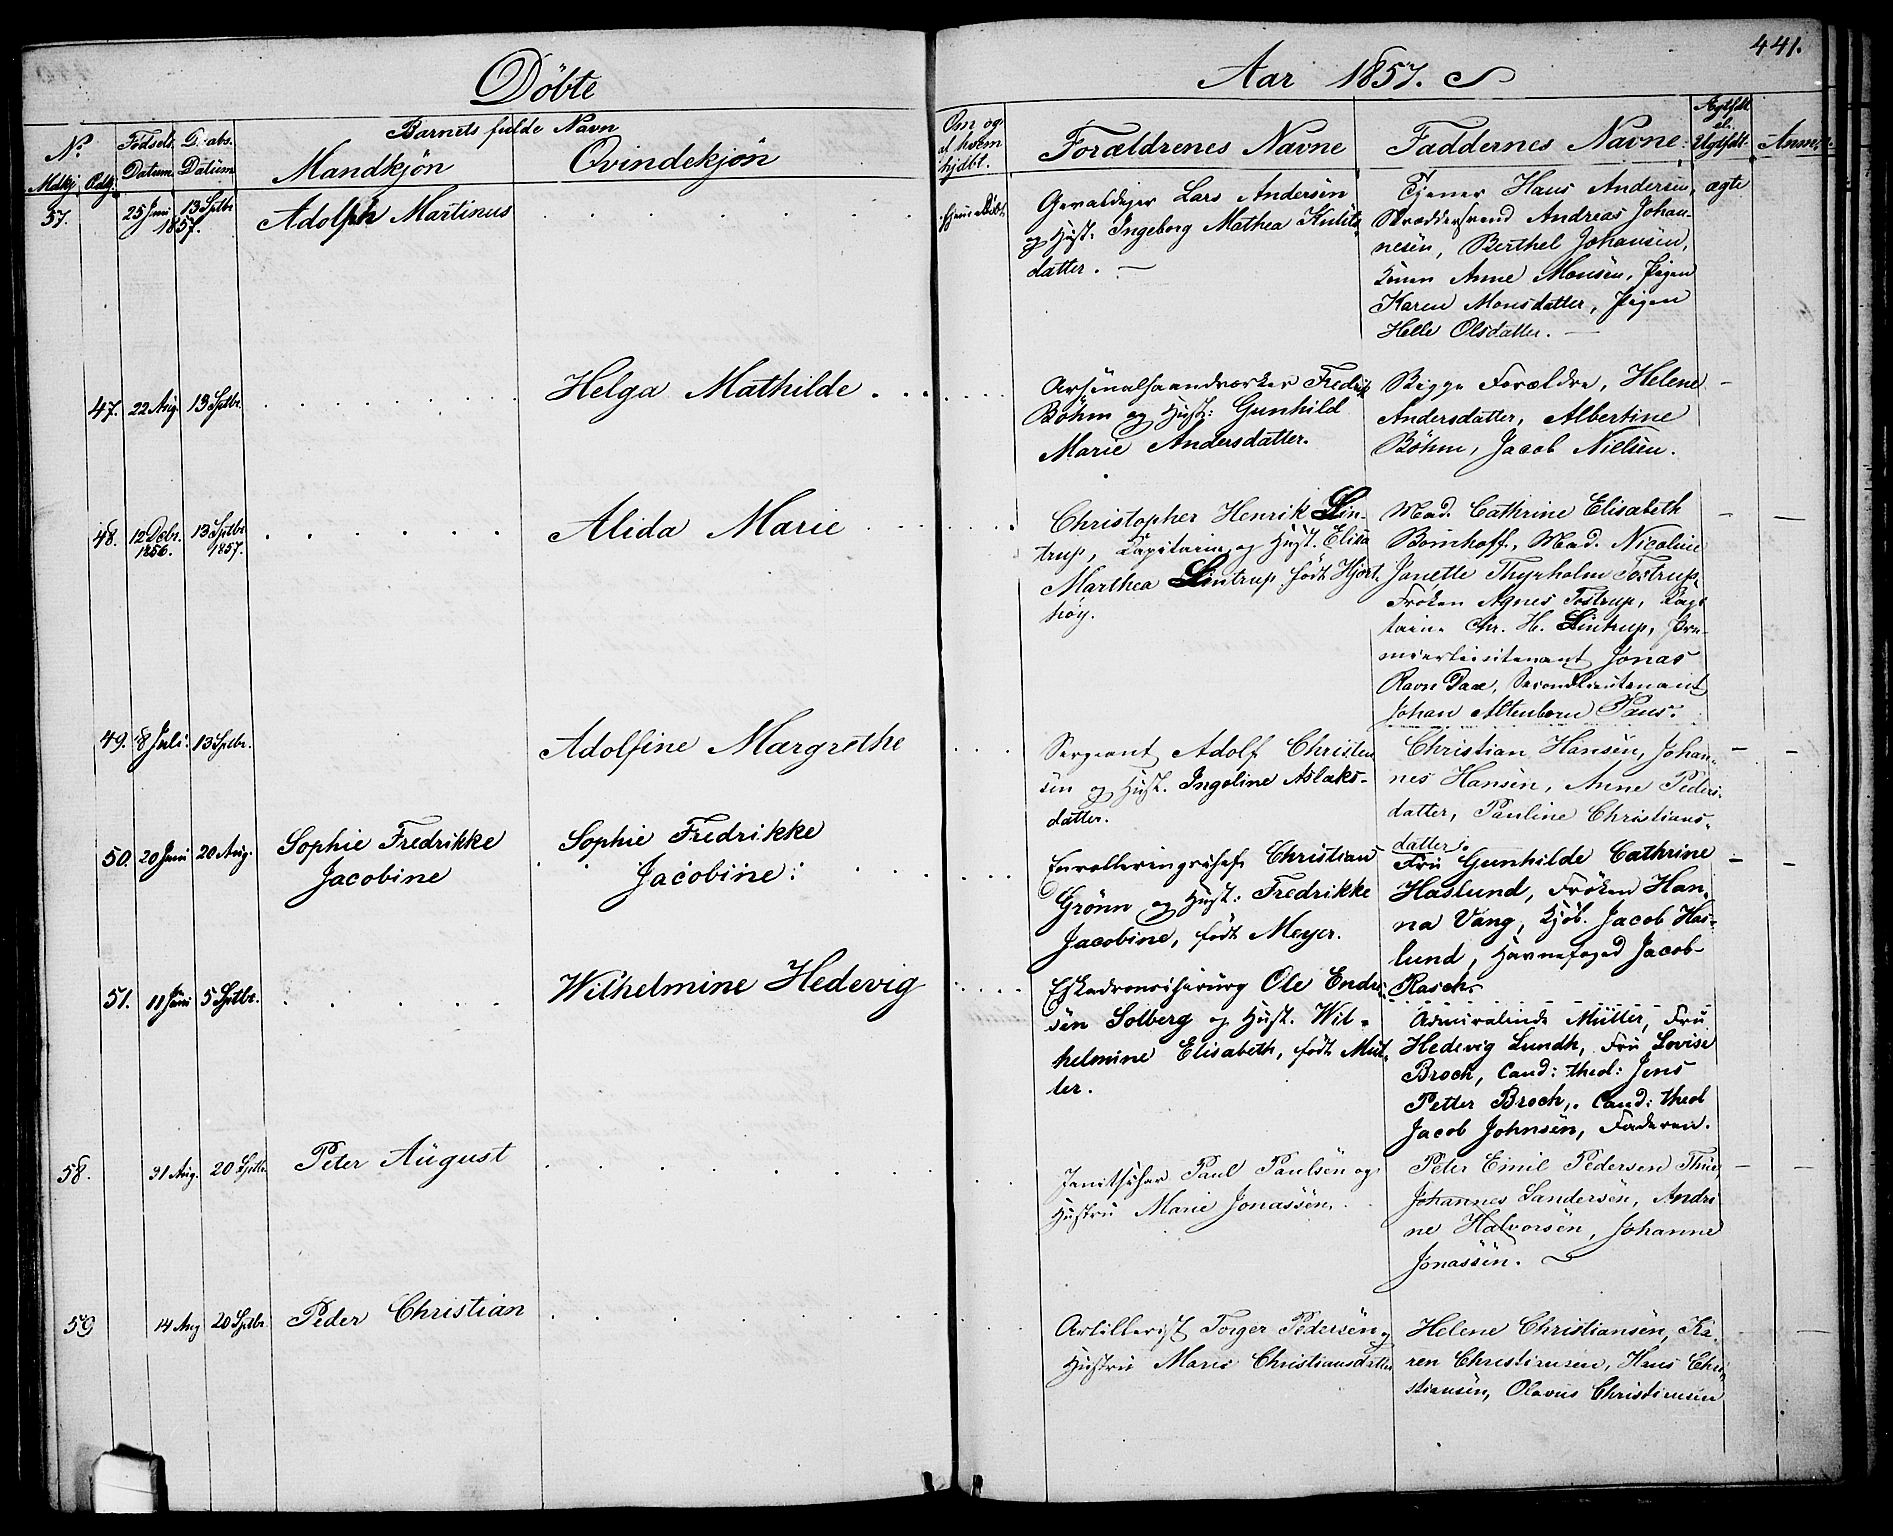 441.
Döbte
Aar 1857.
No. Mdkj. Qvdkj.
Födsels Datum
Daabs. Datum
Barnets fulde Navn
Mandkjøn
Qvindekjøn
Om og af hvem hjdbt.
Forældrenes Navne
Faddernes Navne.
Ægtefdt el. Uægtefdt.
Anm.
57. 25 Juni 13 Sptbr 1857. Adolph Martinus
hjemedöbt
Gevaldiger Lars Andersen
og Hust. Ingeborg Mathea Knuts-
datter.
Tjener Hans Andersen,
Skræddersvend Andreas Johan-
nesen, Berthel Johansen,
Konen Anne Monsen, Pigen
Karen Monsdatter, Pigen
Helle Olsdatter.
ægte
47. 22 Aug. 13 Sptbr. Helga Mathilde
Arsenalhaandværker Fredrik
Böhm og Hust: Gunhild
Marie Andersdatter.
Begge Forældre, Helene
Andersdatter, Albertine
Böhm, Jacob Nielsen.
48. 12 Debr. 1856. 13 Sptbr 1857. Alida Marie
Christopher Henrik Lin-
trup, Kapitain og Hust. Elisa
Marthea Lintrup født Hjort-
höy.
Mad. Cathrine Elisabeth
Bomhoff, Mad. Nicoline
Janette Thyrholm Tostrup,
Fröken Agnes Tostrup, Kapi-
tain Chr. H. Lintrup, Pre-
mierlieutenant Jonas
Ravn Daae, Secondlieutenant
Johan Altenborn Paus.
49. 8 Juli. 13 Sptbr. Adolfine Margrethe
Sergeant Adolf Christen-
sen og Hust. Ingoline Aslaks-
datter.
Christian Hansen, Johan-
nes Hansen, Anne Peders-
datter, Pauline Christians-
datter.
50. 20 Juni 20 Aug. Sophie Fredrikke
Jacobine
Sophie Fredrikke
Jacobine:
Enrolleringschef Christian
Grönn og Hust: Fredrikke
Jacobine, født Meyer.
Fru Gunhilde Cathrine
Haslund, Fröken Han-
na Vang, Kjöb. Jacob Has-
lund, Havnefoged Jacob
Rasch.
51. 11 Juni 5 Sptbr. Wilhelmine Hedevig
Eskadronschirurg Ole Endre-
sen Solberg og Hust. Wil-
helmine Elisabeth, født Mül-
ler.
Admiralinde Müller, Fru
Hedevig Lundh, Fru Lovise
Broch, Cand: theol: Jens
Petter Broch, Cand: theol
Jacob Johnsen, Faderen.
58. 31 Aug. 20 Sptbr. Peter August
Janitschar Paul Paulsen og
Hustru Marie Jonassen.
Peter Emil Pedersen Thue,
Johannes Sandersen, Andri
ne Halvorsen, Johanne
Jonassen.
59 14 Aug 20 Sptbr. Peder Christian
Artillerist Torger Pedersen og
Hustru Marie Christiansdatter
Helene Christiansen, Ka-
ren Christiansen, Hans Chri-
stiansen, Olavus Christiansen